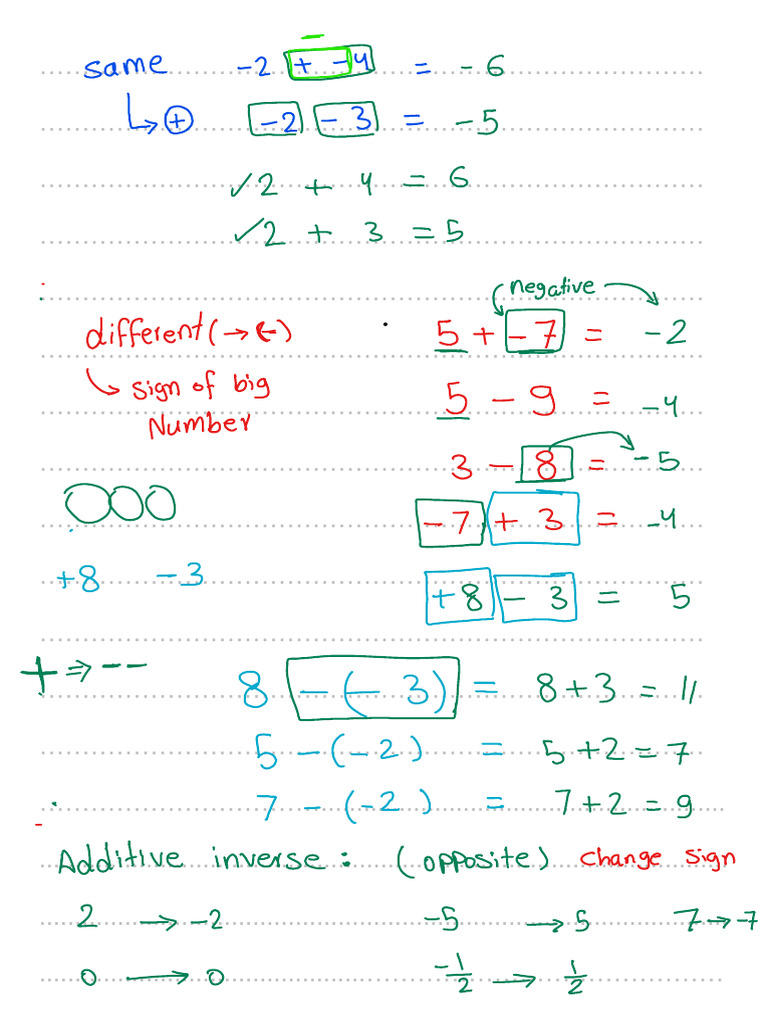 same -2 + -4 = -6
↳ ⊕ -2 - 3 = -5
✓2 + 4 = 6
✓2 + 3 = 5
negative
different (→ ←) 5 + -7 = -2
↳ sign of big 5 - 9 = -4
Number
3 - 8 = -5
-7 + 3 = -4
+8 -3 +8 - 3 = 5
+ ⇒ -- 8 - (- 3) = 8 + 3 = 11
5 - (-2) = 5 + 2 = 7
7 - (-2) = 7 + 2 = 9
Additive inverse : (opposite) change sign
2 → -2 -5 → 5 7 → -7
0 → 0 -1/2 → 1/2